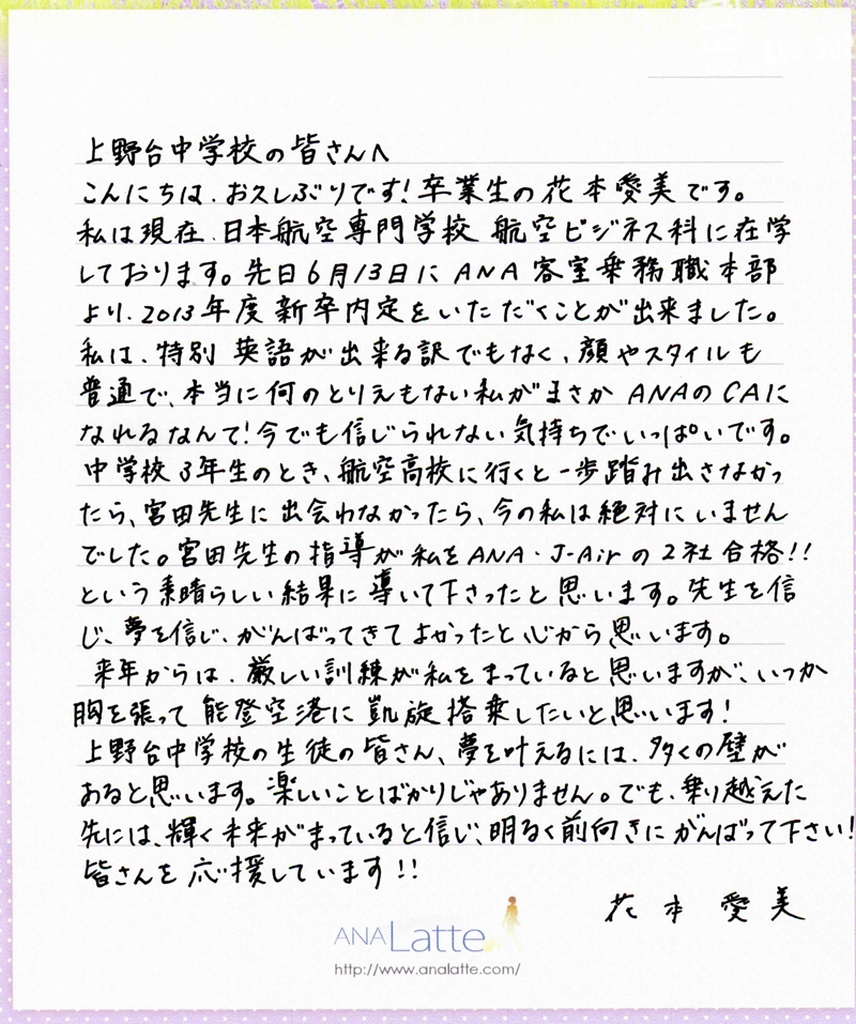 上野台中学校の皆さんへ
こんにちは、お久しぶりです!卒業生の花本愛美です。
私は現在、日本航空専門学校 航空ビジネス科に在学
しております。先日6月13日にANA客室乗務職本部
より、2013年度新卒内定をいただくことが出来ました。
私は、特別 英語が出来る訳でもなく、顔やスタイルも
普通で、本当に何のとりえもない私がまさかANAのCAに
なれるなんて!今でも信じられない気持ちでいっぱいです。
中学校3年生のとき、航空高校に行くと一歩踏み出さなかっ
たら、宮田先生に出会わなかったら、今の私は絶対にいません
でした。宮田先生の指導が私をANA・J-Airの2社合格!!
という素晴らしい結果に導いて下さったと思います。先生を信
じ、夢を信じ、がんばってきてよかったと心から思います。
来年からは、厳しい訓練が私をまっていると思いますが、いつか
胸を張って能登空港に凱旋搭乗したいと思います!
上野台中学校の生徒の皆さん、夢を叶えるには、多くの壁が
あると思います。楽しいことばかりじゃありません。でも、乗り越えた
先には、輝く未来がまっていると信じ、明るく前向きにがんばって下さい!
皆さんを応援しています!!
花本愛美
ANA Latte
http://www.analatte.com/